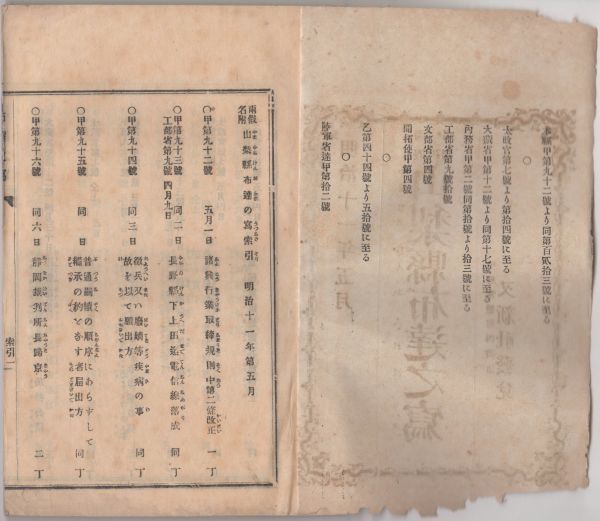 本縣甲第九十二號より同第百貳拾三號に至る
〇
太政官第七號より第拾四號に至る
大藏省甲第十二號より同第十七號に至る
内務省甲第二號同第拾號より拾三號に至る
工部省第九號拾號
文部省第四號
開拓使甲第四號
〇
乙第四十四號より五拾號に至る
〇
陸軍省達甲第拾二號
兩假名附 山梨縣布達の寫索引 明治十一年第五月
〇甲第九十二號 五月一日 諸興行業取締規則中第二條改正 一丁
〇甲第九十三號 同二日 長野縣下上田迄電信線落成 同丁
工部省第九號四月九日
〇甲第九十四號 同三日 徴兵又ハ癈嫡等疾病の事故を以て願出方 同丁
〇甲第九十五號 同日 普通嗣續の順序にあらすして繼承の約をなす者屆出方 同丁
〇甲第九十六號 同六日 靜岡裁判所長歸京 二丁
索引一